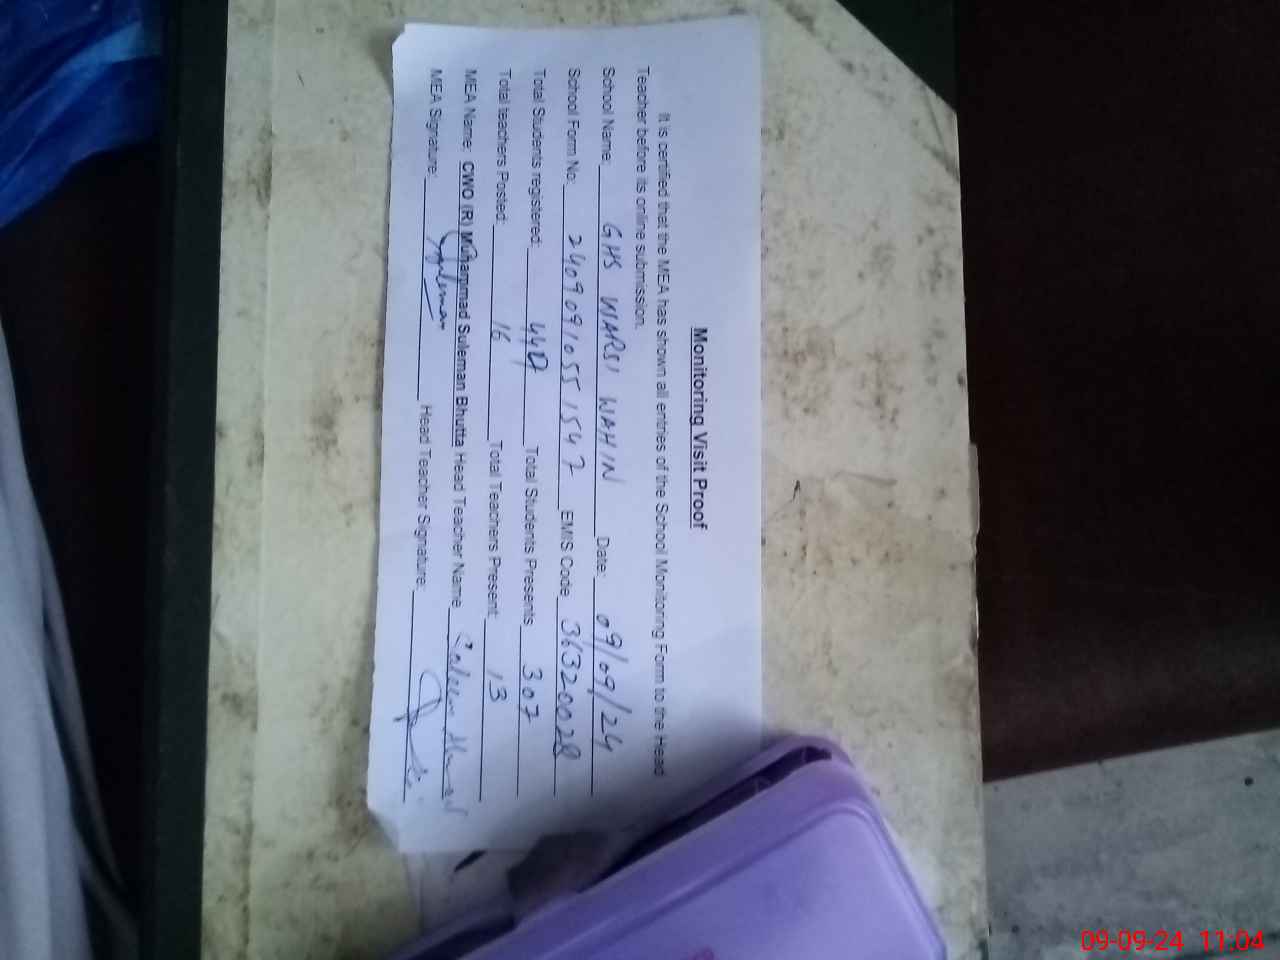 Monitoring Visit Proof
It is certified that the MEA has shown all entries of the School Monitoring Form to the Head
Teacher before its online submission.
School Name: GHS WARSI WAHIN Date: 09/09/24
School Form No: 2409091055 1547 EMIS Code 36320028
Total Students registered: Total Students Presents 307
Total teachers Posted: 16 Total Teachers Present: 13
MEA Name: CWO (R) Muhammad Suleman Bhutta Head Teacher Name Saleem Ahmad
MEA Signature: Suleman Head Teacher Signature:
09-09-24 11:04